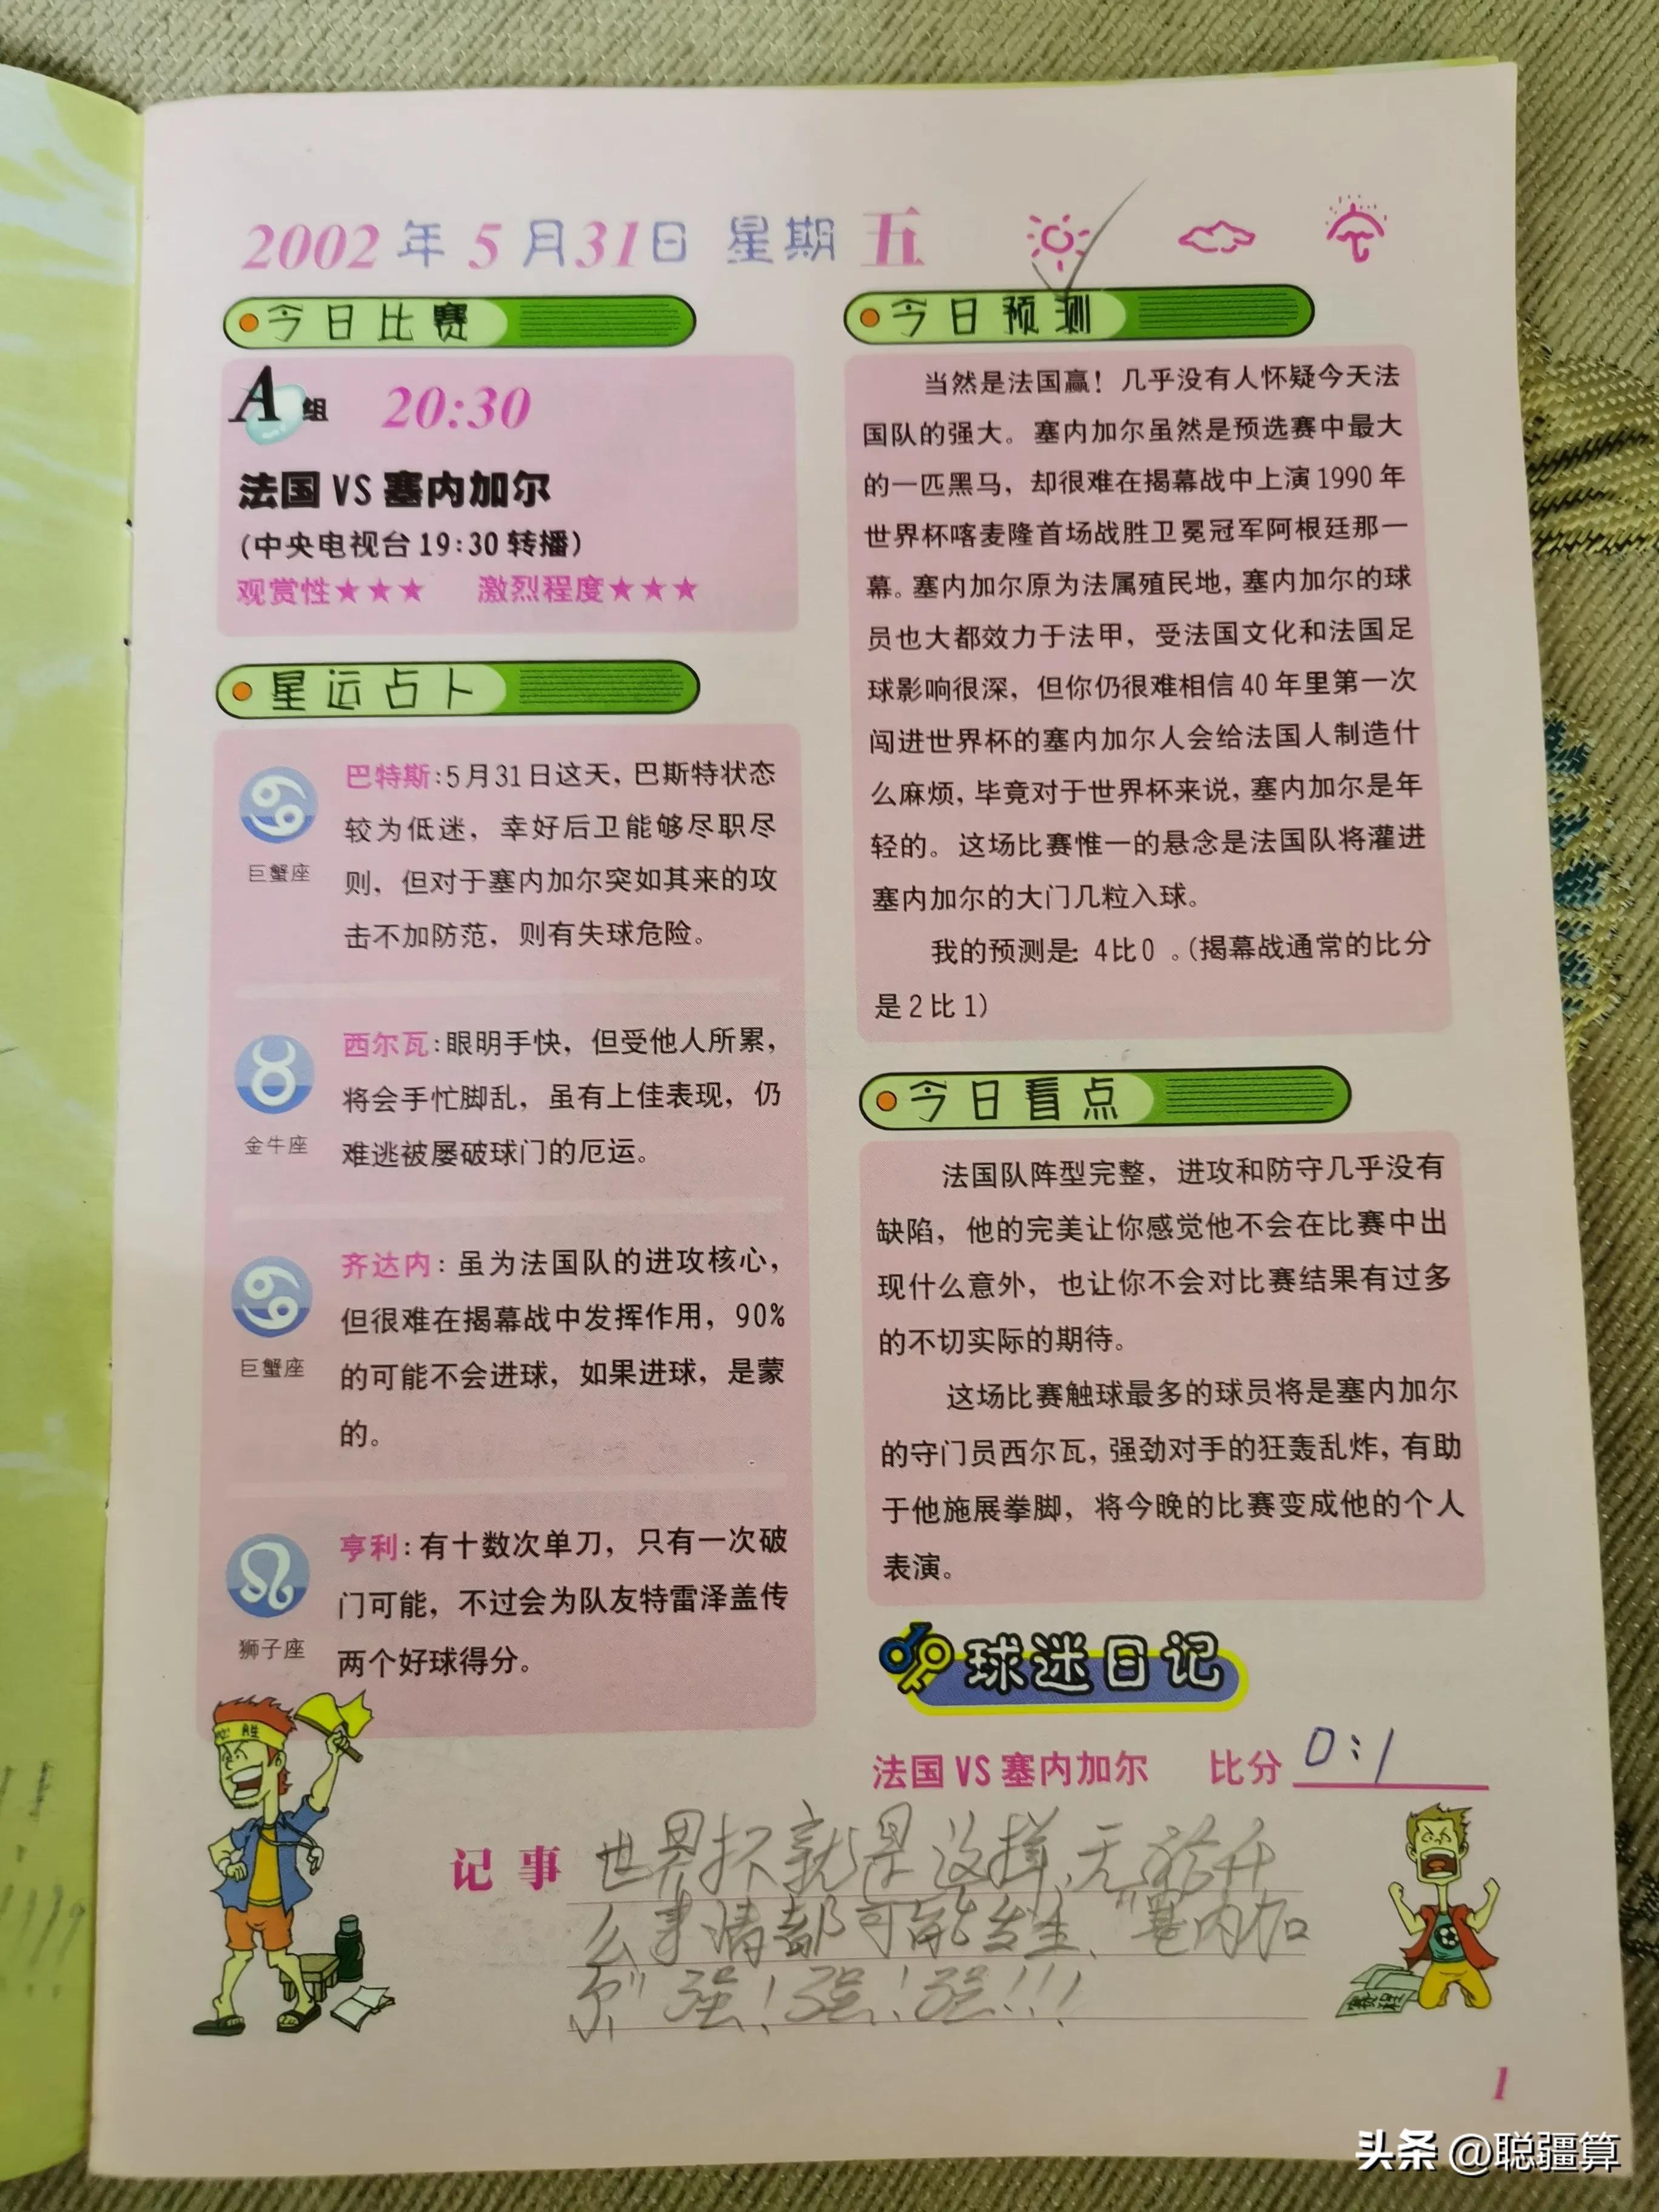 2002年5月31日 星期五
今日比赛
A组 20:30
法国 VS 塞内加尔
(中央电视台19:30转播)
观赏性★★★ 激烈程度★★★
星运占卜
巨蟹座
巴特斯:5月31日这天,巴斯特状态
较为低迷,幸好后卫能够尽职尽
则,但对于塞内加尔突如其来的攻
击不加防范,则有失球危险。
金牛座
西尔瓦:眼明手快,但受他人所累,
将会手忙脚乱,虽有上佳表现,仍
难逃被屡破球门的厄运。
巨蟹座
齐达内:虽为法国队的进攻核心,
但很难在揭幕战中发挥作用,90%
的可能不会进球,如果进球,是蒙
的。
狮子座
亨利:有十数次单刀,只有一次破
门可能,不过会为队友特雷泽盖传
两个好球得分。
今日预测
当然是法国赢!几乎没有人怀疑今天法
国队的强大。塞内加尔虽然是预选赛中最大
的一匹黑马,却很难在揭幕战中上演1990年
世界杯喀麦隆首场战胜卫冕冠军阿根廷那一
幕。塞内加尔原为法属殖民地,塞内加尔的球
员也大都效力于法甲,受法国文化和法国足
球影响很深,但你仍很难相信40年里第一次
闯进世界杯的塞内加尔人会给法国人制造什
么麻烦,毕竟对于世界杯来说,塞内加尔是年
轻的。这场比赛惟一的悬念是法国队将灌进
塞内加尔的大门几粒入球。
我的预测是:4比0。(揭幕战通常的比分
是2比1)
今日看点
法国队阵型完整,进攻和防守几乎没有
缺陷,他的完美让你感觉他不会在比赛中出
现什么意外,也让你不会对比赛结果有过多
的不切实际的期待。
这场比赛触球最多的球员将是塞内加尔
的守门员西尔瓦,强劲对手的狂轰乱炸,有助
于他施展拳脚,将今晚的比赛变成他的个人
表演。
球迷日记
法国 VS 塞内加尔 比分 0:1
记事 世界杯就是这样,无论什
么事情都可能发生、"塞内加
尔"强!强!强!!!
胜
赛程
1
头条 @聪疆算